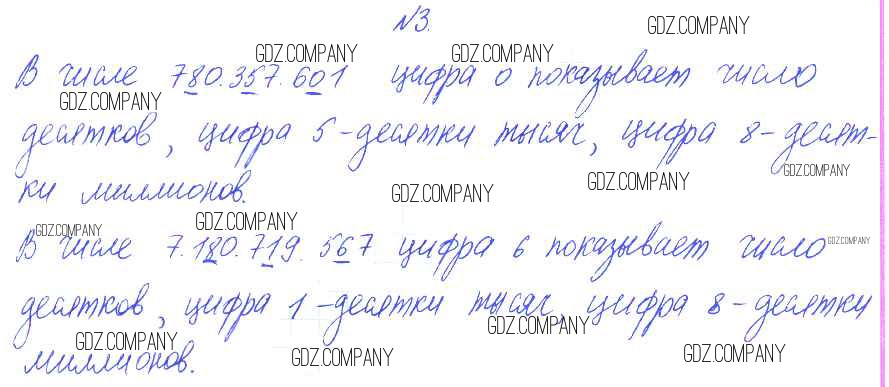 №3.
GDZ.COMPANY
GDZ.COMPANY GDZ.COMPANY
В числе 780.357.601 цифра 0 показывает число
GDZ.COMPANY
десятков, цифра 5 - десятки тысяч, цифра 8 - десят-
GDZ.COMPANY
ки миллионов.
GDZ.COMPANY GDZ.COMPANY
GDZ.COMPANY GDZ.COMPANY GDZ.COMPANY
В числе 7.180.719.567 цифра 6 показывает число
десятков, цифра 1 - десятки тысяч, цифра 8 - десятки
GDZ.COMPANY GDZ.COMPANY
миллионов.
GDZ.COMPANY GDZ.COMPANY